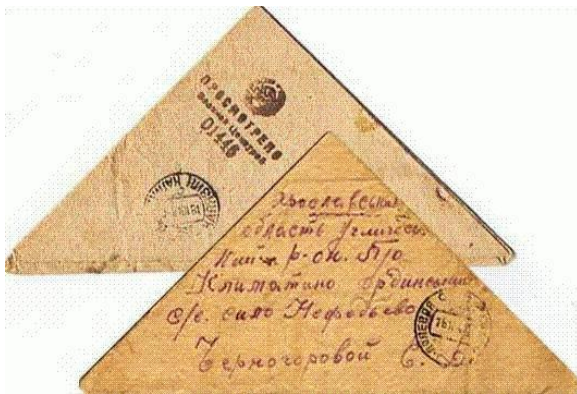 ПРОСМОТРЕНО
Военной Цензурой
01446
Ярославская
область Угличес-
кий р-он. П/о
Климатино Ординский
с/с. село Нефедьево
Черногоровой С. Д.
ПОЛЕВАЯ